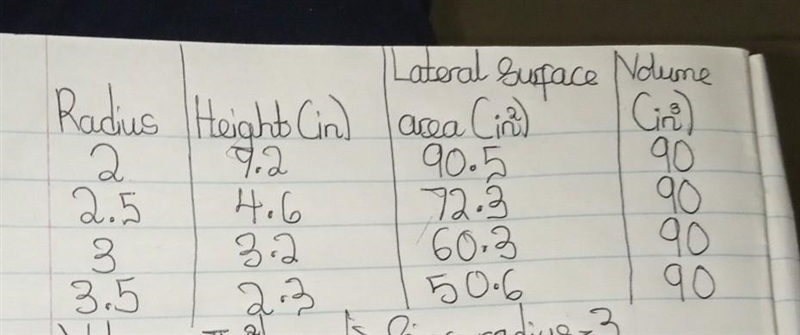 Radius | Height (in) | Lateral Surface area (in²) | Volume (in³)
2 | 9.2 | 90.5 | 90
2.5 | 4.6 | 72.3 | 90
3 | 3.2 | 60.3 | 90
3.5 | 2.3 | 50.6 | 90
radius = 3